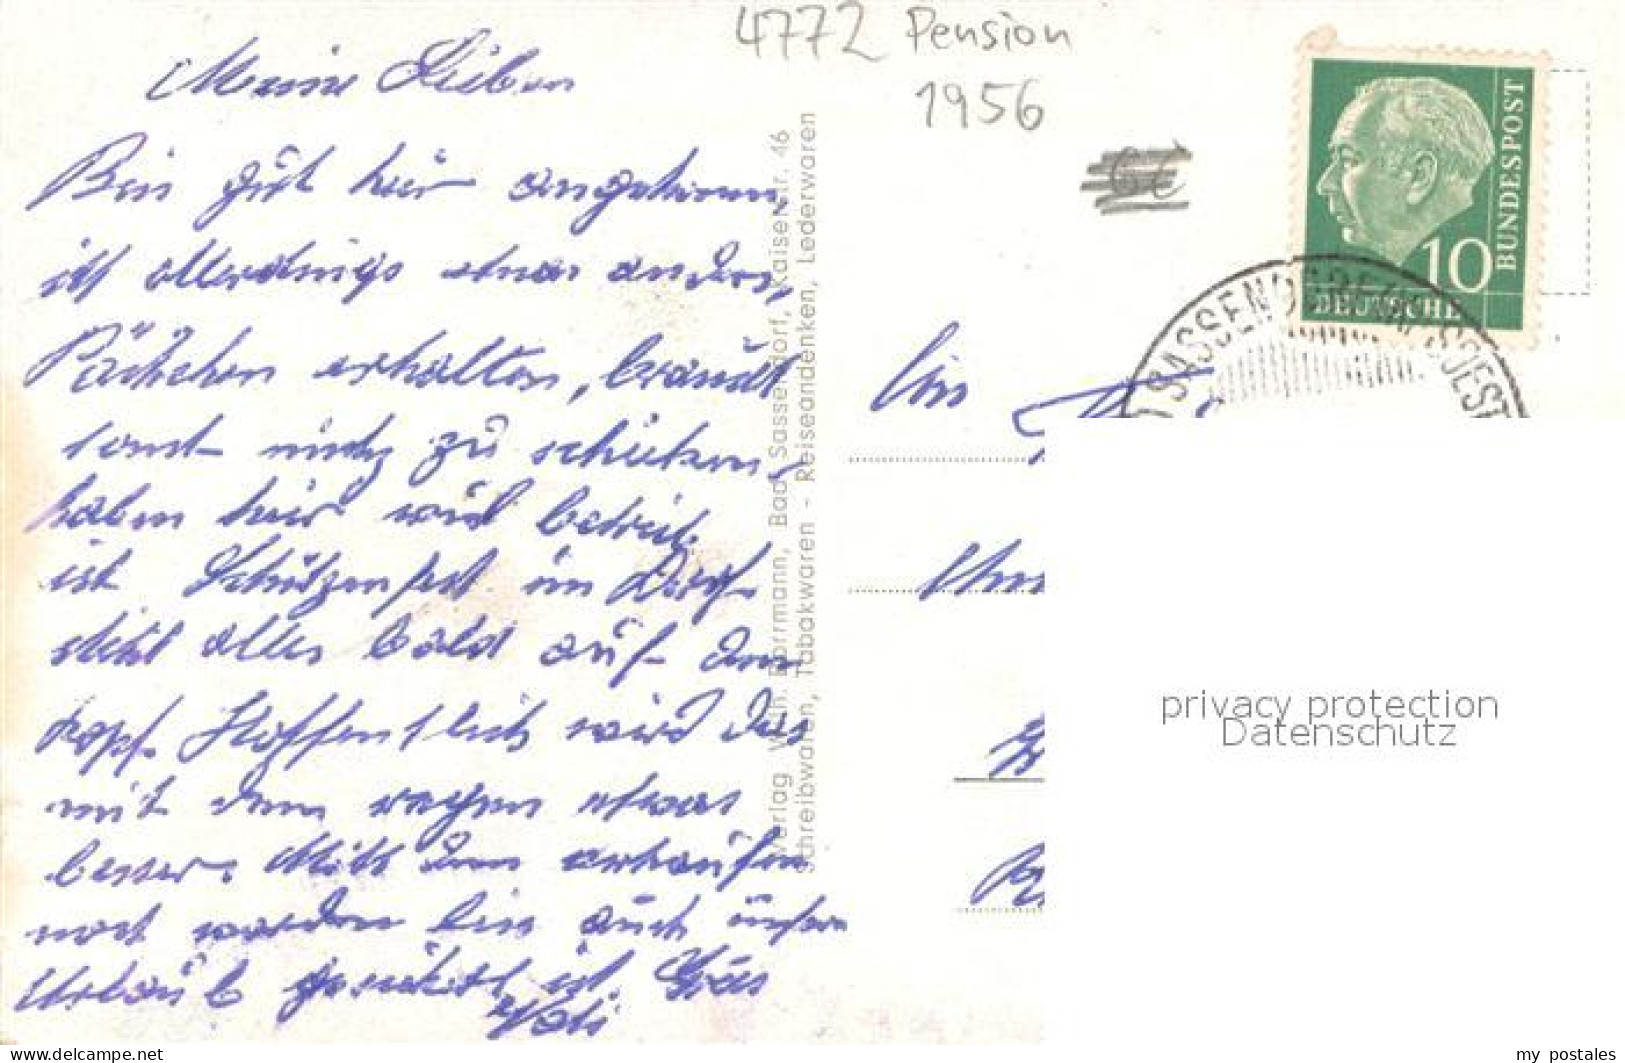 4772 Pension
1956
6€
Meine Lieben
Bin gut hier angekommen,
ist allerdings etwas anders,
Päckchen erhalten, braucht
sonst nichts zu schicken,
haben hier viel betrieb.
ist Schützenfest im Dorf
steht alles bald auf dem
kopf. Hoffentlich wird das
mit dem regen etwas
besser. Mitt dem
noch werden bin auch unser
Urlaub ist Grus
Vati
Verlag Wilh. Borrmann, Bad Sassendorf, Kaiserstr. 46
Schreibwaren, Tabakwaren - Reiseandenken, Lederwaren
DEUTSCHE
BUNDESPOST
10
SASSENDORF SOEST
An
privacy protection
Datenschutz
www.delcampe.net
my_postales